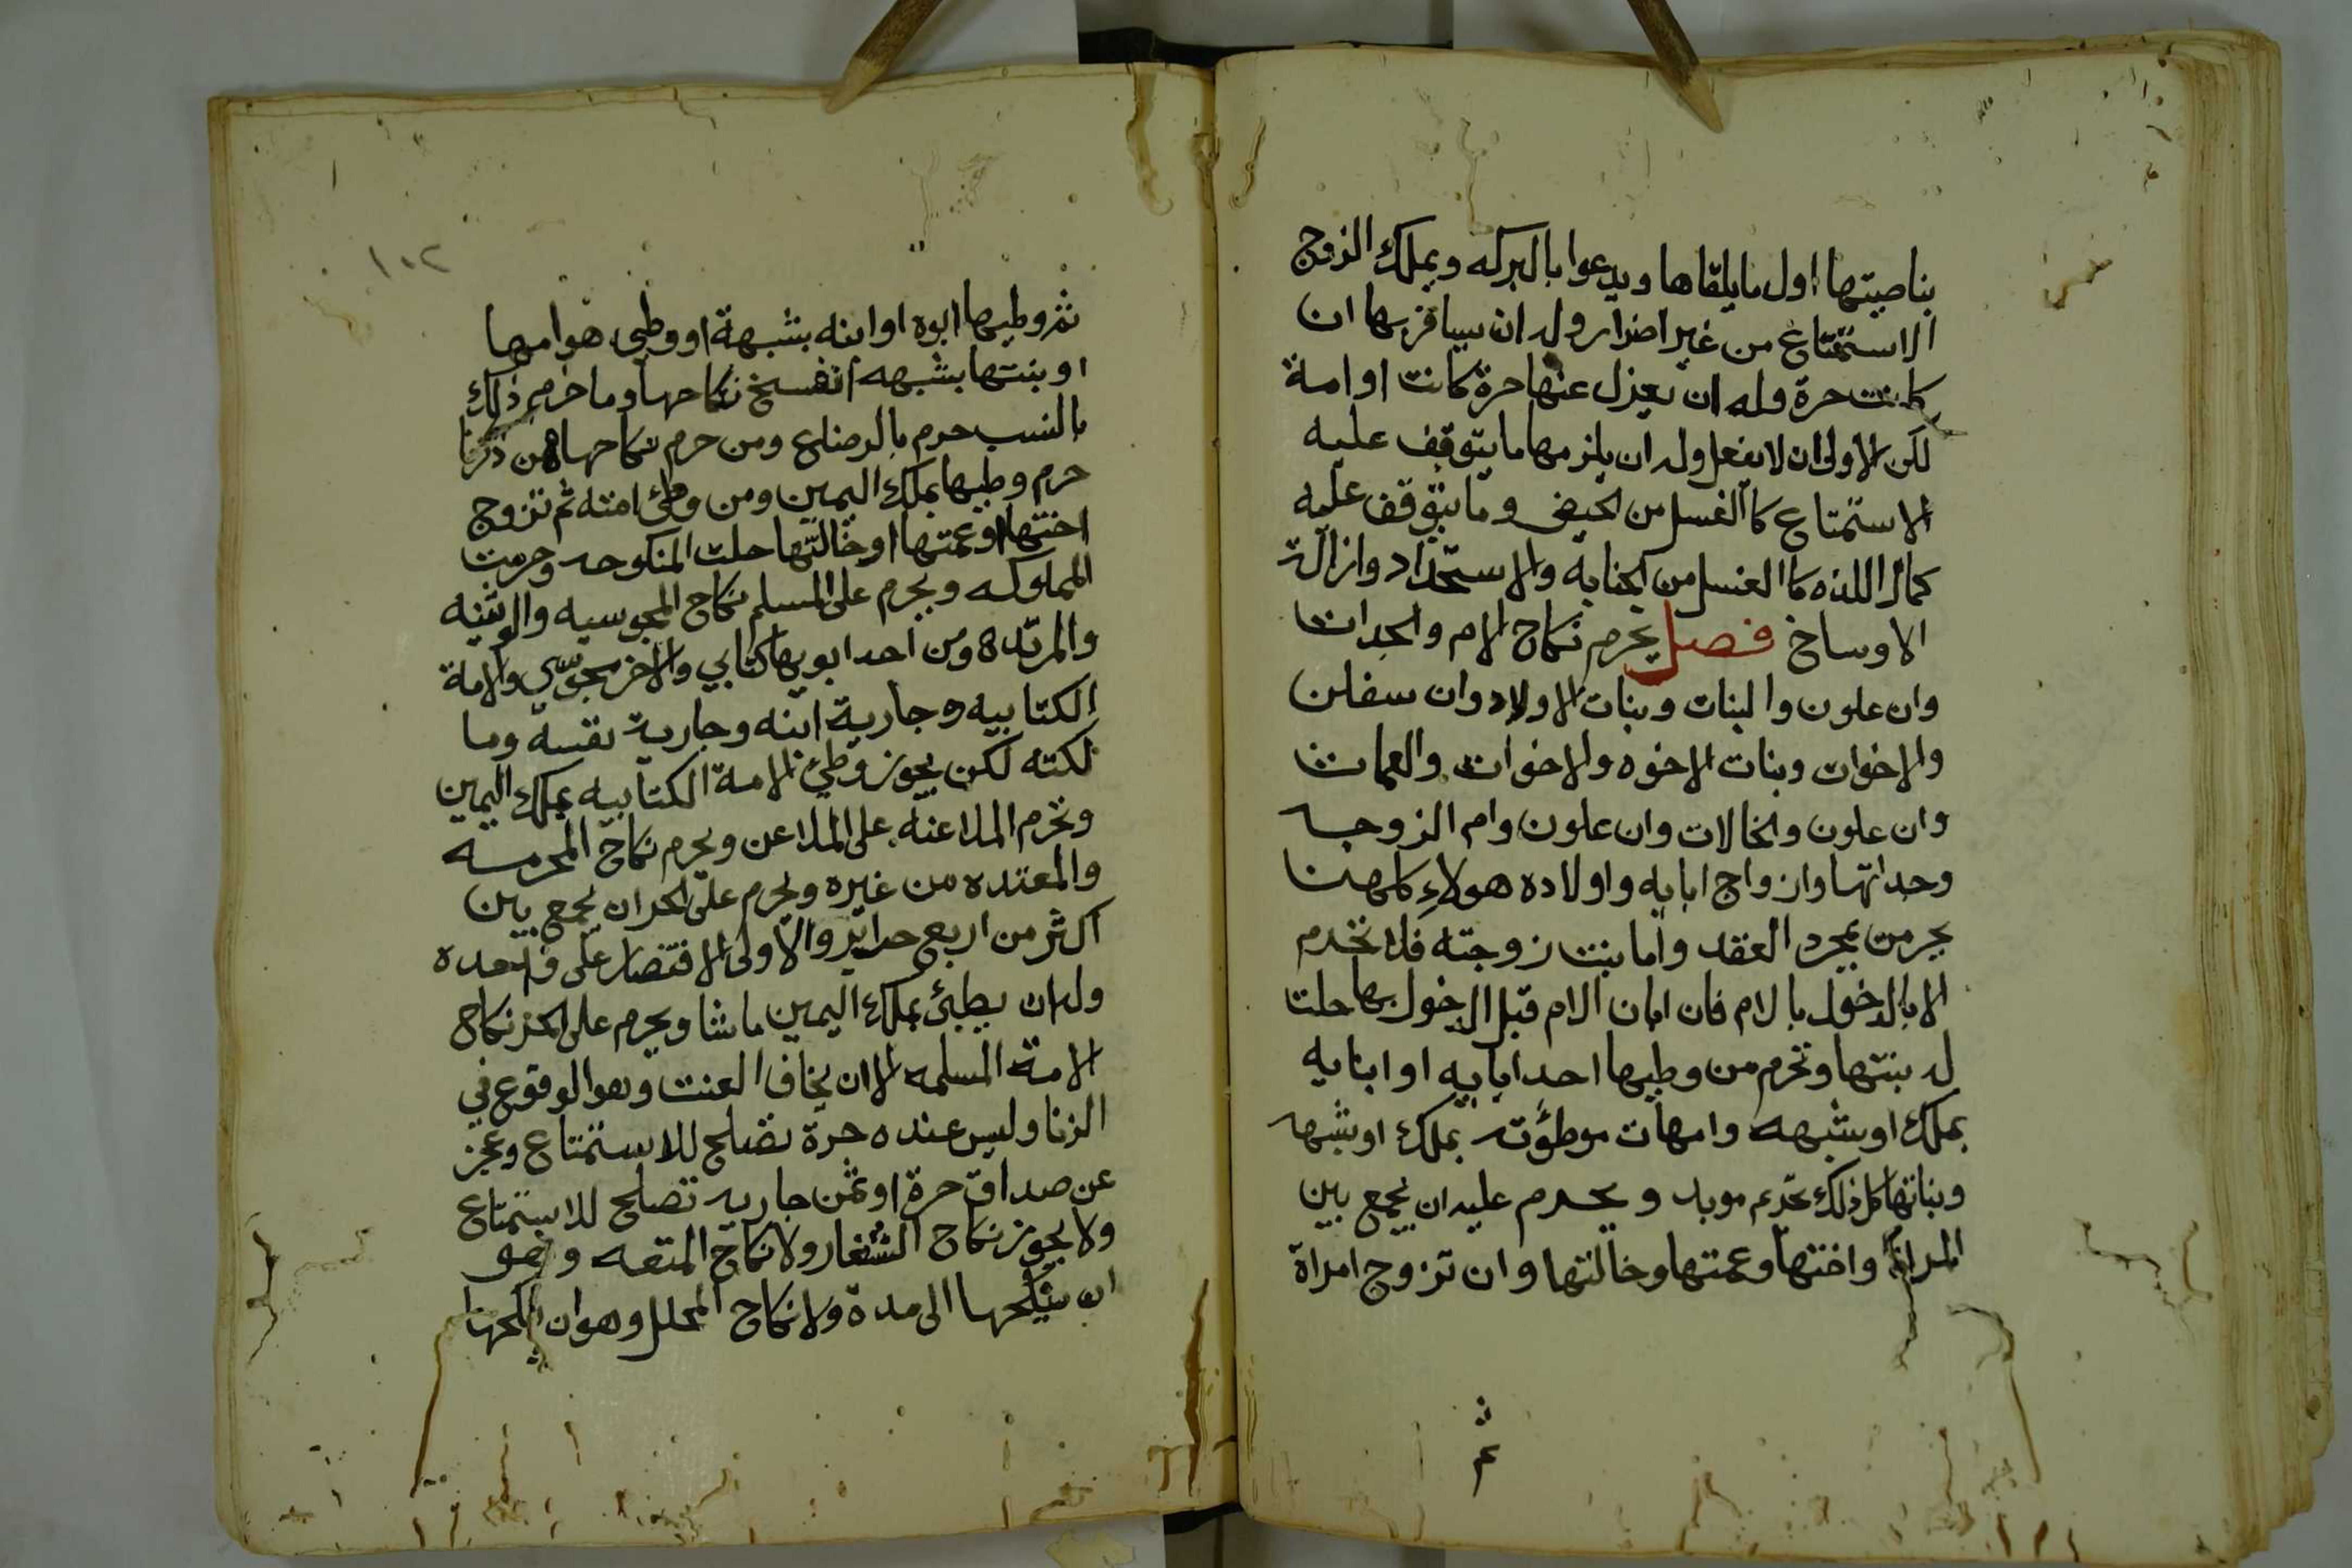 بناصيتها اول ما يلقاها ويدعوا بالبركه ويملك الزوج
الاستمتاع من غير اضرار وله ان يسافر بها ان
كانت حرة وله ان يعزل عنها حرة كانت او امة
لكن الاولى ان لا يفعل وله ان يلزمها ما يتوقف عليه
الاستمتاع كالغسل من الحيض وما يتوقف عليه
كمال اللذه كالغسل من الجنابه والاستحداد وازالة
الاوساخ فصل يحرم نكاح الام والجدات
وان علون والبنات وبنات الاولاد وان سفلن
والاخوات وبنات الاخوه والاخوات والعمات
وان علون والخالات وان علون وام الزوجه
وجداتها وازواج ابايه واولاده هولاء كلهن
يحرمن بمجرد العقد واما بنت زوجته فلا تحرم
الا بالدخول بالام فان ابان الام قبل الدخول بها حلت
له بنتها وتحرم من وطيها احد ابايه او ابنايه
بملك او بشبهه وامهات موطؤته بملك او بشبهه
وبناتها كل ذلك تحريم موبد ويحرم عليه ان يجمع بين
المراة واختها وعمتها وخالتها وان تزوج امراة
ثم
١٠٢
ثم وطيها ابوه او ابنه بشبهة او وطي هو امها
او بنتها بشبهه انفسخ نكاحها وما حرم من ذلك
بالنسب حرم بالرضاع ومن حرم نكاحها ممن ذكرنا
حرم وطيها بملك اليمين ومن وطئ امته ثم تزوج
اختها او عمتها او خالتها حلت المنكوحه وحرمت
المملوكه ويحرم على المسلم نكاح المجوسيه والوثنيه
والمرتده ومن احد ابويها كتابي والاخر مجوسي والامة
الكتابيه وجارية ابنه وجارية نفسه وما
لكته لكن يجوز وطئ الامة الكتابيه بملك اليمين
وتحرم الملاعنه على الملاعن ويحرم نكاح المحرمه
والمعتده من غيره ويحرم على الحر ان يجمع بين
اكثر من اربع حراير والاولى الاقتصار على واحده
وله ان يطئ بملك اليمين ما شا ويحرم على الحر نكاح
الامة المسلمه الا ان يخاف العنت وهو الوقوع في
الزنا وليس عنده حرة تصلح للاستمتاع وعجز
عن صداق حرة او ثمن جاريه تصلح للاستمتاع
ولا يجوز نكاح الشغار ولا نكاح المتعه وهو
ان ينكحها الى مدة ولا نكاح المحلل وهو ان ينكحها